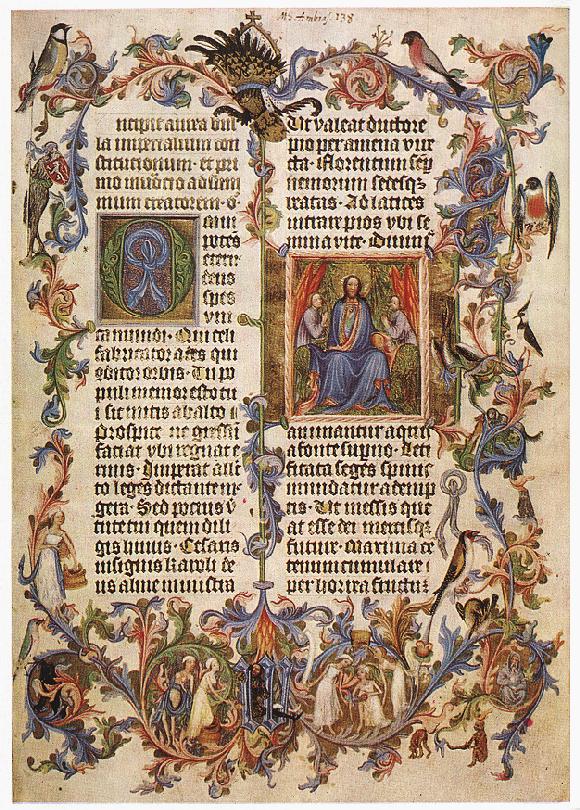 MS Ambras. 138
ncipit aurea bul
la imperialium con
stitucionum · et pri
mo inuocacio ad sum
mum creatorem · O
mni
potes
eterne
deus
spes
vni
ca mundi · Qui celi
fabricator ades qui
conditor orbis · Tu po
puli memor esto tui
sic mitis ab alto
prospice ne gressū
faciat vbi regnat e
rinis · Imperat alle
cto leges dictante me
gera · Sed pocius v̄
tute tui quem dili
gis huius · Cesaris
insignis karoli de
us alme ministra
Ut valeat ductore
pio per amena vire
ta · florentum sep̄
nemorum sedesq3
beatas · Ad latices
intrare pios vbi se
mina vite · Diuinis
animantur aquis
a fonte sup̄no · Leti
ficata seges spinis
mundatur ademp
tis · Ut messis que
at esse dei mercisq3
future · maxima ce
tenum cumulare
per horrea fructū